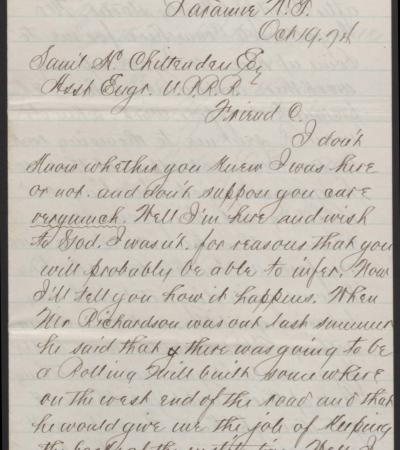 Laramie W.T.
Oct 19. 74
Saml H. Chittenden Esq
Asst Engr. U.P.R.R.
Friend C.
I don't
know whether you knew I was here
or not. and don't suppose you care
very much. Well I'm here and wish
to God. I wasn't. for reasons that you
will probably be able to infer. Now
I'll tell you how it happens. When
Mr Richardson was out last summer
he said that there was going to be
a Rolling Mill built some where
on the west end of the road and that
he would give me the job of keeping
the books of the institution. Well I